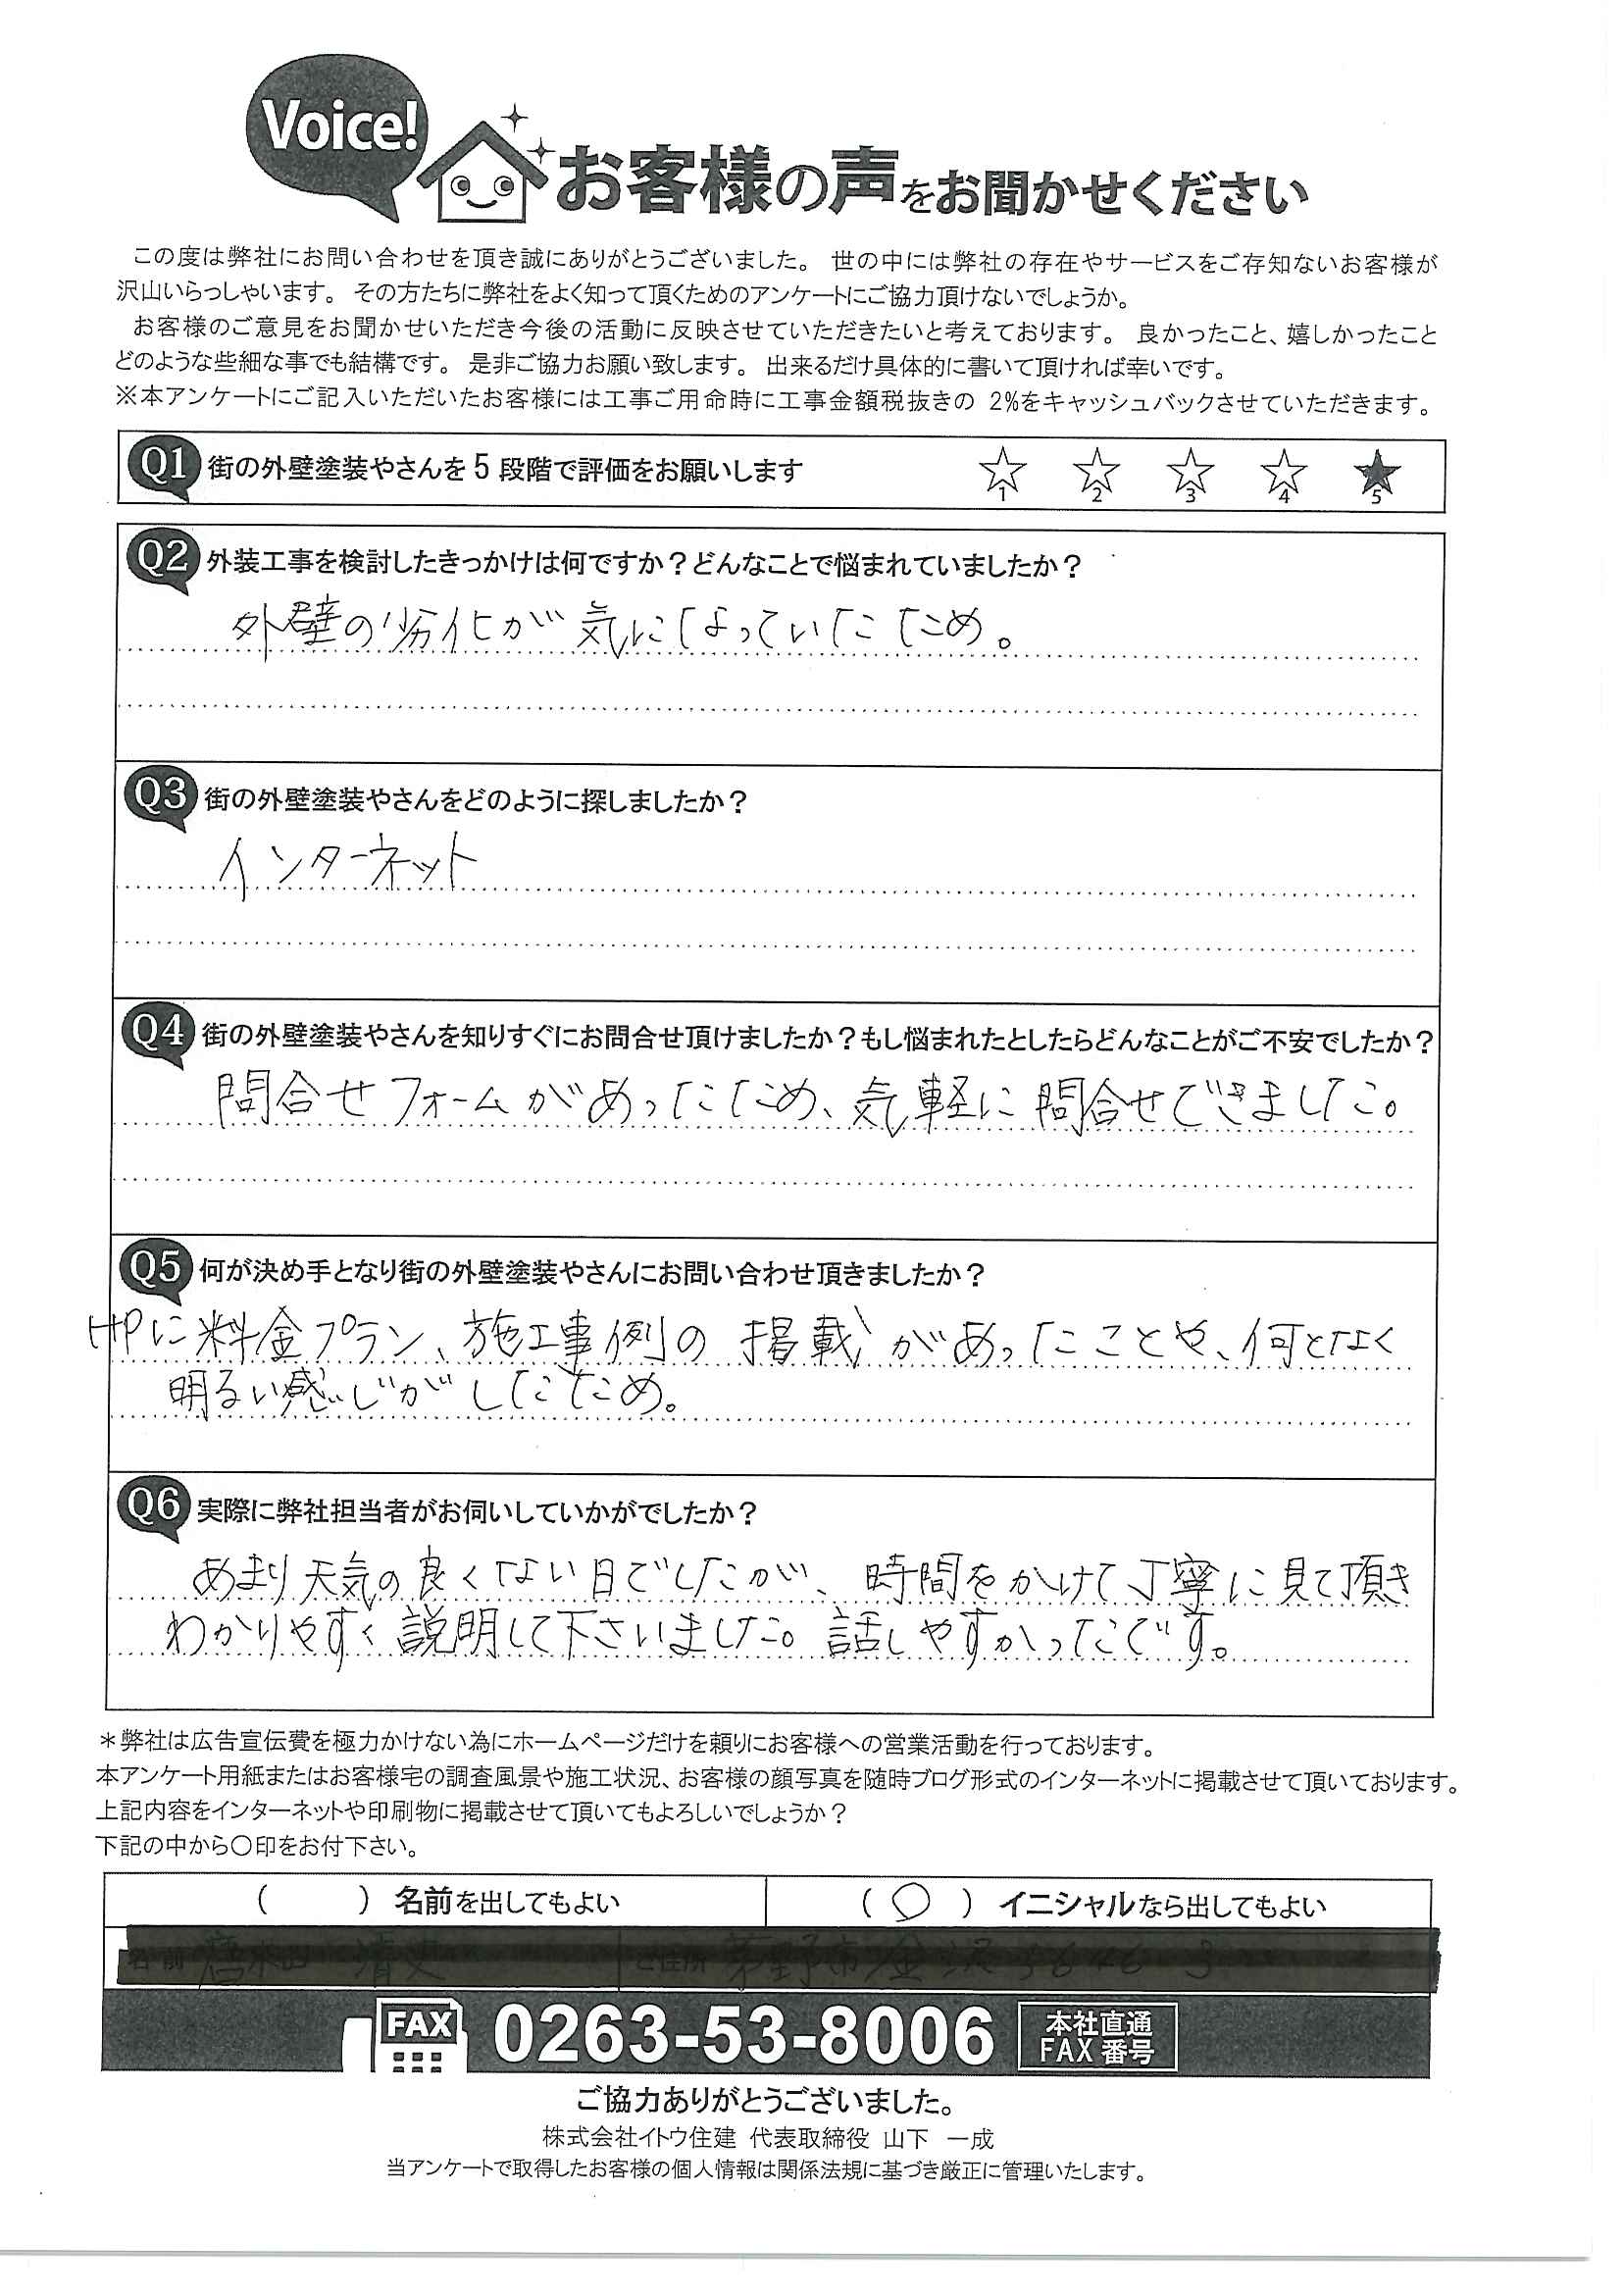 Voice!
お客様の声をお聞かせください
この度は弊社にお問い合わせを頂き誠にありがとうございました。 世の中には弊社の存在やサービスをご存知ないお客様が
沢山いらっしゃいます。 その方たちに弊社をよく知って頂くためのアンケートにご協力頂けないでしょうか。
お客様のご意見をお聞かせいただき今後の活動に反映させていただきたいと考えております。 良かったこと、嬉しかったこと
どのような些細な事でも結構です。 是非ご協力お願い致します。 出来るだけ具体的に書いて頂ければ幸いです。
※本アンケートにご記入いただいたお客様には工事ご用命時に工事金額税抜きの 2%をキャッシュバックさせていただきます。
Q1 街の外壁塗装やさんを5段階で評価をお願いします ☆1 ☆2 ☆3 ☆4 ★5
Q2 外装工事を検討したきっかけは何ですか？どんなことで悩まれていましたか？
外壁の劣化が気になっていたため。
Q3 街の外壁塗装やさんをどのように探しましたか？
インターネット
Q4 街の外壁塗装やさんを知りすぐにお問合せ頂けましたか？もし悩まれたとしたらどんなことがご不安でしたか？
問合せフォームがあったため、気軽に問合せできました。
Q5 何が決め手となり街の外壁塗装やさんにお問い合わせ頂きましたか？
HPに料金プラン、施工事例の掲載があったことや、何となく
明るい感じがしたため。
Q6 実際に弊社担当者がお伺いしていかがでしたか？
あまり天気の良くない日でしたが、時間をかけて丁寧に見て頂き
わかりやすく説明して下さいました。話しやすかったです。
＊弊社は広告宣伝費を極力かけない為にホームページだけを頼りにお客様への営業活動を行っております。
本アンケート用紙またはお客様宅の調査風景や施工状況、お客様の顔写真を随時ブログ形式のインターネットに掲載させて頂いております。
上記内容をインターネットや印刷物に掲載させて頂いてもよろしいでしょうか？
下記の中から〇印をお付下さい。
（　　）名前を出してもよい （〇）イニシャルなら出してもよい
FAX 0263-53-8006 本社直通
FAX番号
ご協力ありがとうございました。
株式会社イトウ住建 代表取締役 山下 一成
当アンケートで取得したお客様の個人情報は関係法規に基づき厳正に管理いたします。